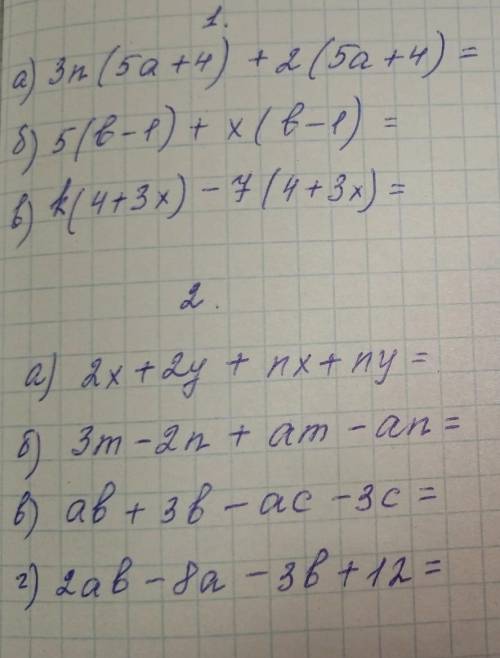 1.
а) 3n(5a+4) + 2(5a+4) =
б) 5(b-1) + x(b-1) =
в) k(4+3x) - 7(4+3x) =
2.
а) 2x + 2y + nx + ny =
б) 3m - 2n + am - an =
в) ab + 3b - ac - 3c =
г) 2ab - 8a - 3b + 12 =